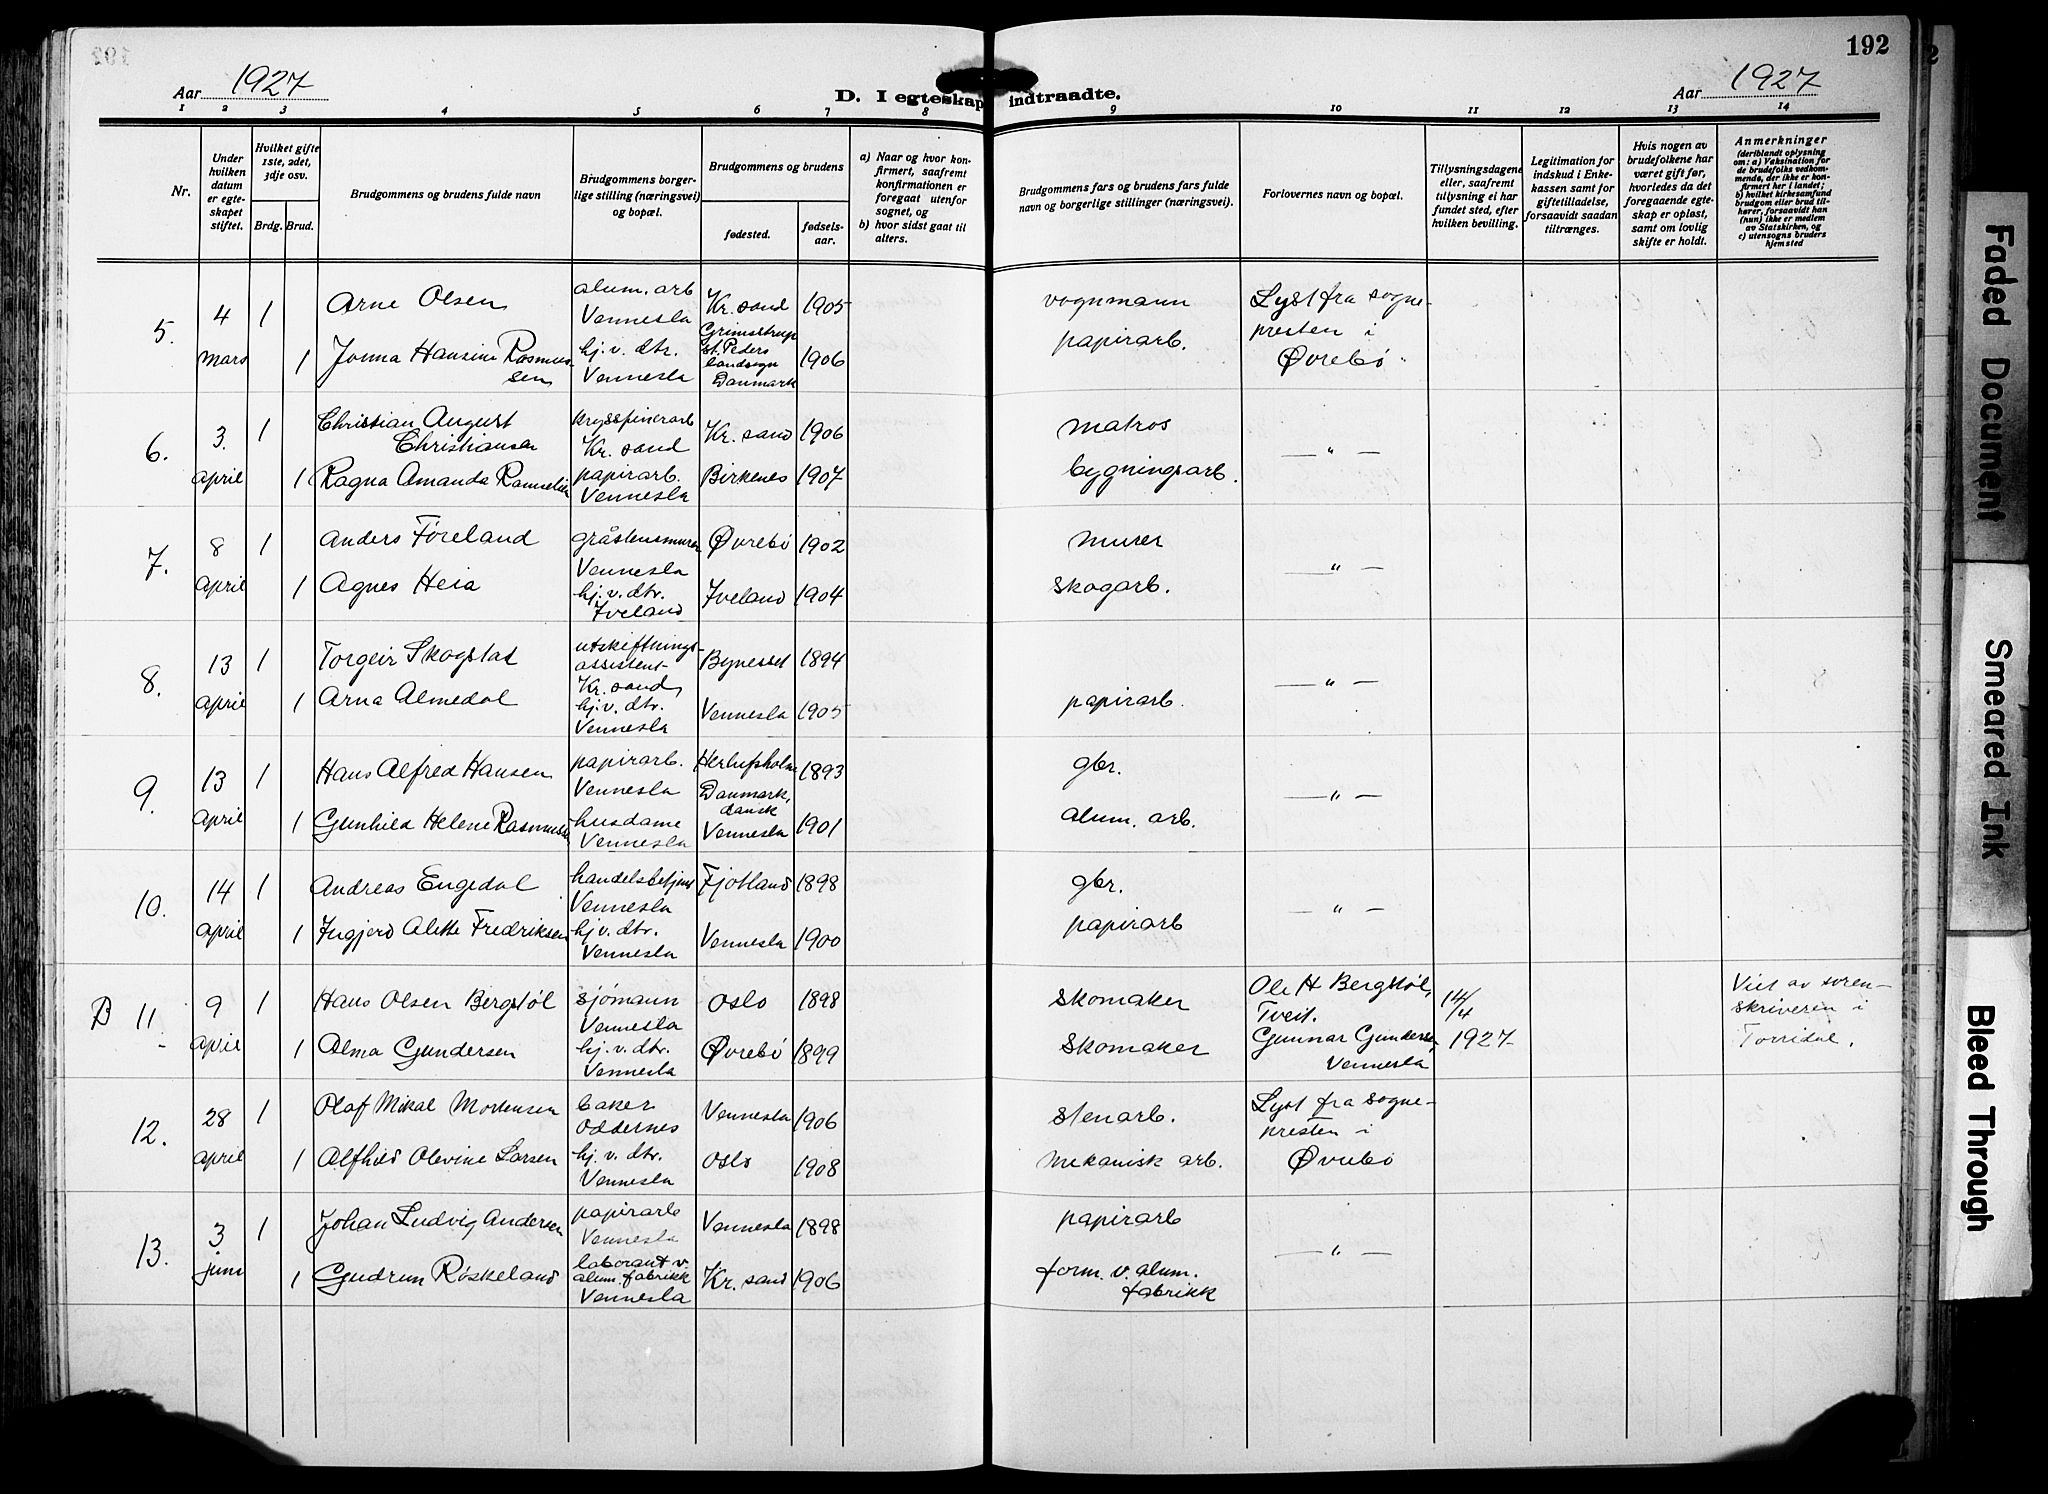 192
Aar 1927
D. I egteskap indtraadte.
Aar 1927
1 2 3 4 5 6 7 8 9 10 11 12 13 14
Nr.
Under hvilken datum er egteskapet stiftet.
Hvilket gifte 1ste, 2det, 3dje osv.
Brdg. Brud.
Brudgommens og brudens fulde navn
Brudgommens borgerlige stilling (næringsvei) og bopæl.
Brudgommens og brudens
fødested.
fødselsaar.
a) Naar og hvor konfirmert, saafremt konfirmationen er foregaat utenfor sognet, og
b) hvor sidst gaat til alters.
Brudgommens fars og brudens fars fulde navn og borgerlige stillinger (næringsvei).
Forlovernes navn og bopæl.
Tillysningsdagene eller, saafremt tillysning ei har fundet sted, efter hvilken bevilling.
Legitimation for indskud i Enkekassen samt for giftetilladelse, forsaavidt saadan tiltrænges.
Hvis nogen av brudefolkene har været gift før, hvorledes da det foregaaende egteskap er opløst, samt om lovlig skifte er holdt.
Anmerkninger
(deriblandt oplysning om: a) Vaksination for de brudefolks vedkommende, der ikke er konfirmert her i landet; b) hvilket kirkesamfund brudgom eller brud tilhører, forsaavidt han (hun) ikke er medlem av Statskirken, og c) utensogns bruders hjemsted
5. 4 mars
1 Arne Olsen alum. arb Vennesla Kr. sand 1905 vognmann Lyst fra sognepresten i Øvrebø
1 Jonna Hansine Rasmussen hj. v. dtr. Vennesla Grimstrup st. Peders landsogn Danmark 1906 papirarb.
6. 3. april
1 Christian August Christiansen krysspinerarb Kr. sand Kr. sand 1906 matros — " —
1 Ragna Amanda Ramselien papirarb. Vennesla Birkenes 1907 bygningsarb.
7. 8 april
1 Anders Føreland gråstensmurer Vennesla Øvrebø 1902 murer — " —
1 Agnes Heia hj. v. dtr. Iveland Iveland 1904 skogarb.
8. 13 april
1 Torgeir Skogstad utskiftningsassistent Kr. sand Bynesset 1894 — " —
1 Arna Almedal hj. v. dtr. Vennesla Vennesla 1905 papirarb.
9. 13 april
1 Hans Alfred Hansen papirarb. Vennesla Herlufsholm Danmark, dansk 1893 gbr. — " —
1 Gunhild Helene Rasmussen husdame Vennesla Vennesla 1901 alum. arb.
10. 14 april
1 Andreas Engedal handelsbetjent Vennesla Fjotland 1898 gbr. — " —
1 Ingjerd Alette Fredriksen hj v. dtr. Vennesla Vennesla 1900 papirarb
B 11 9 april
1 Hans Olsen Bergstøl sjömann Vennesla Oslo 1898 skomaker Ole H Bergstøl, Tveit. 14/4 1927 Viet av sorenskriveren i Torridal.
1 Alma Gundersen hj. v. dtr. Vennesla Øvrebö 1899 skomaker Gunnar Gundersen, Vennesla
12. 28 april
1 Olaf Mikal Mortensen baker Oddernes Vennesla 1906 stenarb. Lyst fra sognepresten i Øvrebø
1 Alfhild Olevine Larsen hj. v. dtr. Vennesla Oslo 1908 mekanisk arb.
13. 3 juni
1 Johan Ludvig Andersen papirarb Vennesla Vennesla 1898 papirarb — " —
1 Gudrun Røskeland laborant v. alum. fabrikk Vennesla Kr. sand 1906 form. v. alum. fabrikk
Faded Document
Smeared Ink
Bleed Through